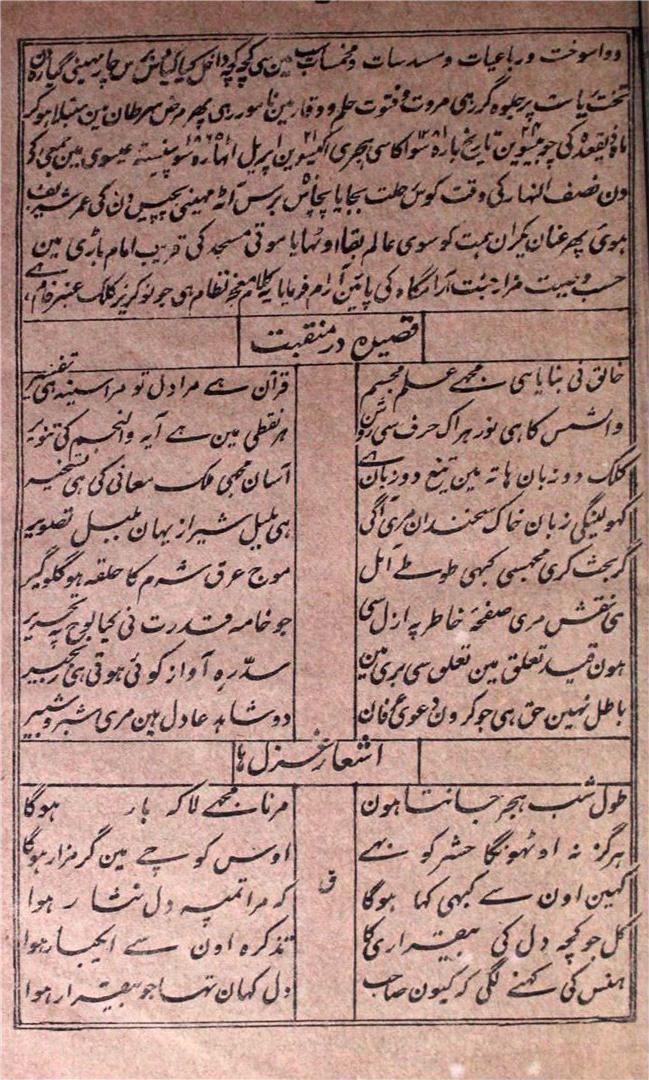 وواسوخت ورباعیات ومسدسات ومخمسات مین سی کچہہ کچہہ داخل کیا برس چار مہینی گیارہ دن
تخت ریاست پر جلوہ گر رہی مروت وفتوت حلم ووقار مین نامور رہی پھر مرض سرطان مین مبتلا ہوکر
ماہ ذیقعدہ کی چوبیسوین تاریخ بارہ سو اکاسی ہجری اکیسوین اپریل اٹہارہ سو پینسٹہ عیسوی مین جمعی کی
دن نصف النہار کی وقت کوس رحلت بجایا پچاس برس آٹہ مہینی پچیس دن کی عمر شریف
ہوئی پھر عنان یکران ہمت کو سوی عالم بقا اوٹہایا موتی مسجد کی قریب امام باڑی مین
حسب وصیت مزار جنت آرامگاہ کی پائین آرام فرمایا یہ کلام معجز نظام ہی جو نوکریز کلک عنبر فام ہے
قصیدہ در منقبت
خالق نی بنایا سی مجھے علم مجسم
قرآن ہے مرا دل تو مرا سینہ ہی تفسیر
والشمس کا ہی نور ہر اک حرف سی روشن
ہر نقطی مین ہے آیہ والنجم کی تنویر
کلک دو زبان ہاتہ مین تیغ دو زبان ہے
آسان مجھی ملک معانی کی ہی تسخیر
کھولینگی زبان خاک سخندان مری آگی
ہی بلبل شیراز یہان بلبل تصویر
گر بحث کری مجہسی کبھی طوطے آمل
موج عرق شرم کا حلقہ ہو گلوگیر
ہی نقش مری صفحۂ خاطر پہ ازل سی
جو خامہ قدرت نی کیا لوح پہ تحریر
ہون قید تعلق مین تعلق سی بری مین
سدّ رہ آواز کوئی ہوتی ہی زنجیر
باطل نہین حق ہی جو کرون دعوی عرفان
دو شاہد عادل ہین مری شبر وشبیر
اشعار غزل ہا
طول شب ہجر جانتا ہون
مرنا مجھے لاکہ بار ہوگا
ہرگز نہ اوٹھونگا حشر کو بہے
اوس کوچے مین گر مزار ہوگا
کہین اون سے کبھی کہا ہوگا
ق
کہ مرا تمپہ دل نثار ہوا
کل جو کچہ دل کی بیقراری کا
تذکرہ اون سے ایکبار ہوا
ہنس کی کہنے لگی کہ کیون صاحب
دل کہان تہا جو بیقرار ہوا